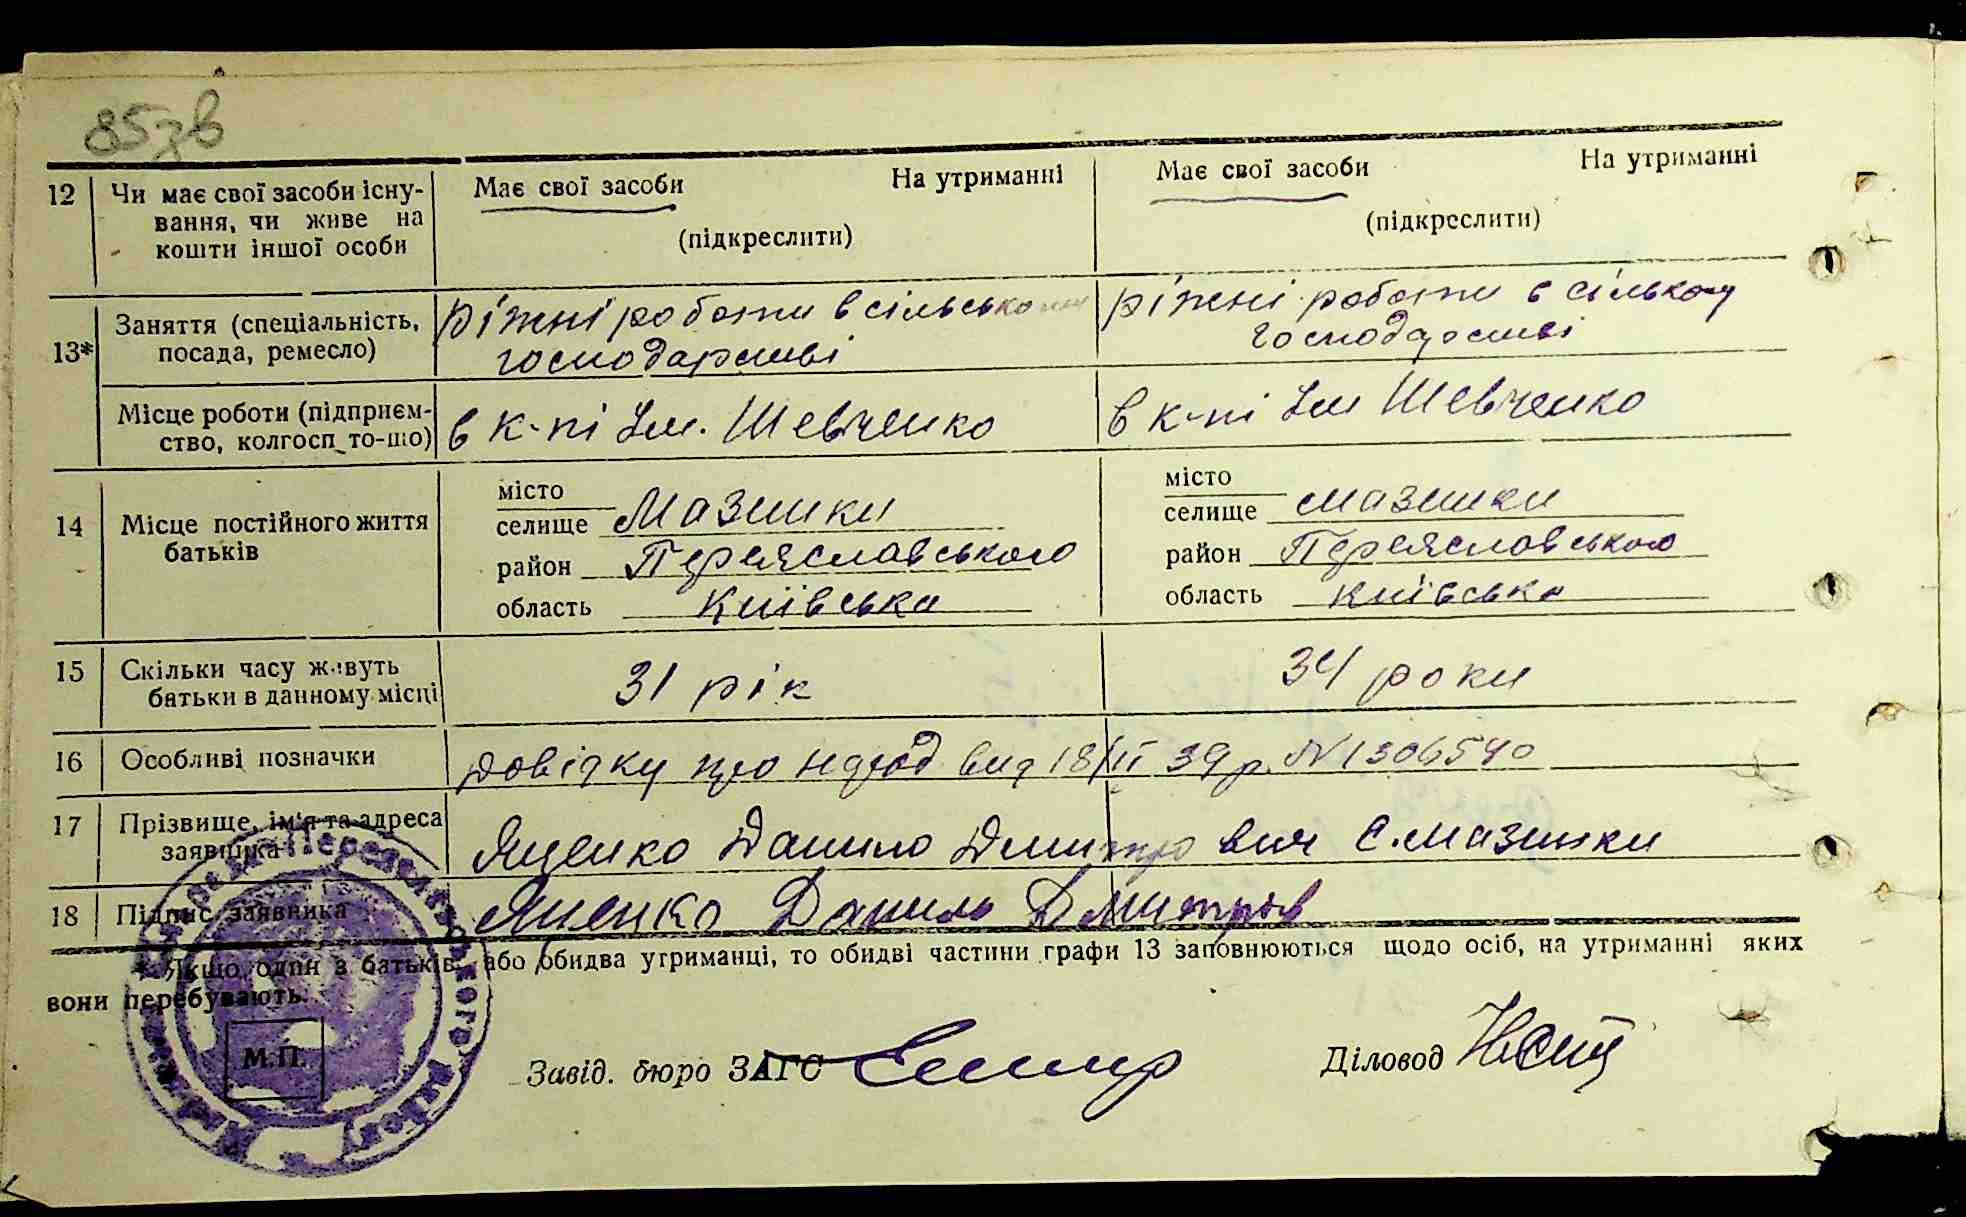 85зв
12 Чи має свої засоби існу- Має свої засоби На утриманні Має свої засоби На утриманні
вання, чи живе на
кошти іншої особи (підкреслити) (підкреслити)
13* Заняття (спеціальність, ріжні роботи в сільському ріжні роботи в сількому
посада, ремесло) господарстві господарстві
Місце роботи (підприєм- в к-пі Ім. Шевченко в к-пі Ім Шевченко
ство, колгосп то-що)
14 Місце постійного життя батьків
місто місто
селище Мазинки селище мазинки
район Переяславського район Переяславського
область Київська область київська
15 Скільки часу живуть 31 рік 34 роки
батьки в данному місці
16 Особливі позначки довідку про народ вид 18/II 39 р. № 1306540
17 Прізвище, ім'я та адреса
заявника Яценко Данило Дмитрович С. Мазинки
18 Підпис заявника Яценко Данило Дмитров
* Якщо один з батьків, або обидва утриманці, то обидві частини графи 13 заповнюються щодо осіб, на утриманні яких
вони перебувають.
М.П.
Завід. бюро ЗАГС Діловод